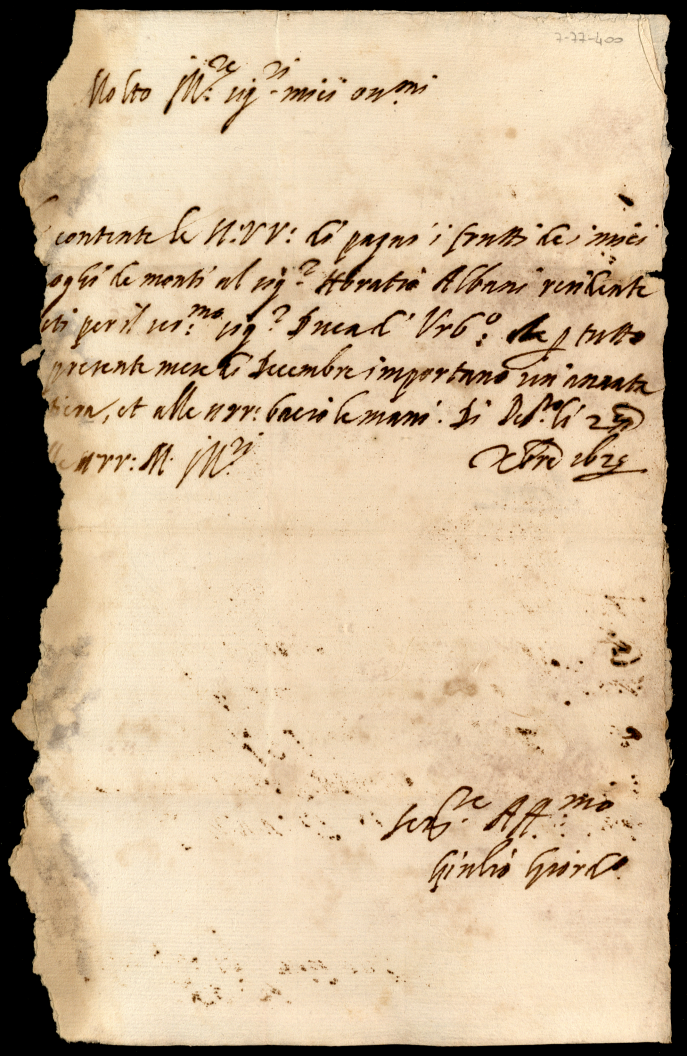 7-77-400
Molto Ill.re sig.ri miei on.mi
contente le N: VV: di pagar i frutti de i miei
oghi de monti al sig.r Horatio Albani residente
per il ser.mo sig.r Duca d' Urb.o che p tutto
presente mese di Decembre importano un'annata
et alle VV: bacio le mani. Di li
VV: M. Ill.ri Xbre
Ser.re Aff.mo
Giulio Giord.o